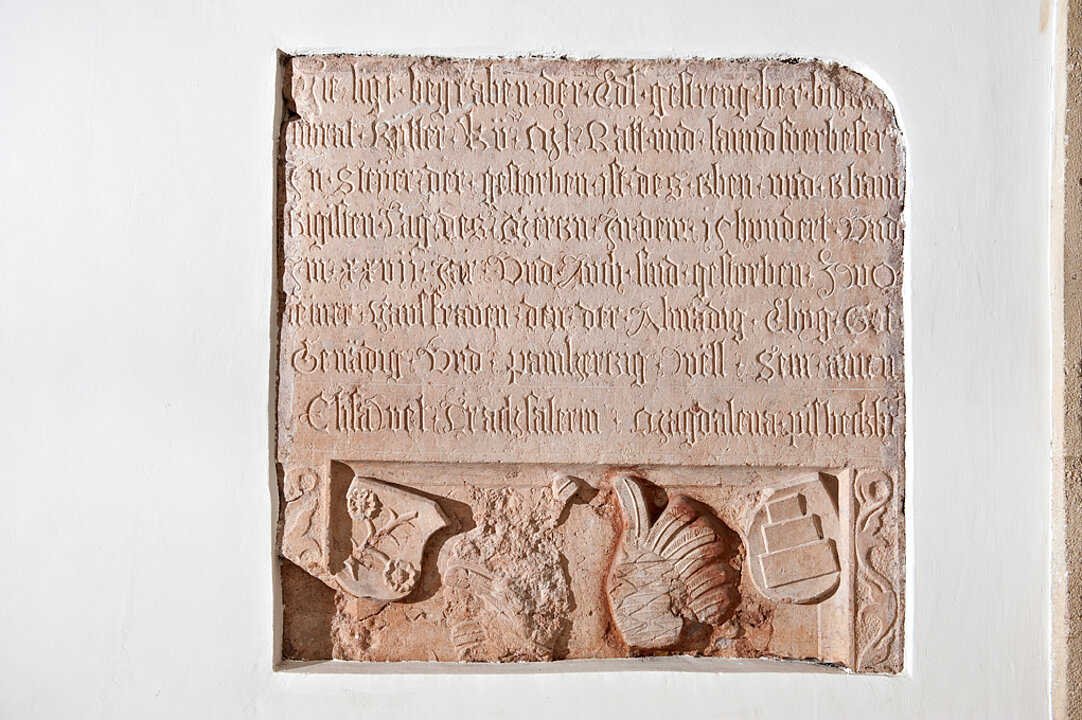 Hie ligt · begraben · der · Edl · gestreng · her ·
Ritter · Kü · Mt · Ratt · und · lanndsverbeser
In · Steyer · der · gestorben · ist · des · siben · und · zban
zigisten · Tag · des · Mertzn · In dem · 15 hundert · Und
Im · xxvii · Jar · Und · Auch · sind · gestorben ·
seiner · hausfrauen · den · der · Almadig · Ebig · Got
Genädig · Und · parmhertzig · well · Sein · amen
Elisabet · Trachsalerin · Magdalena ·